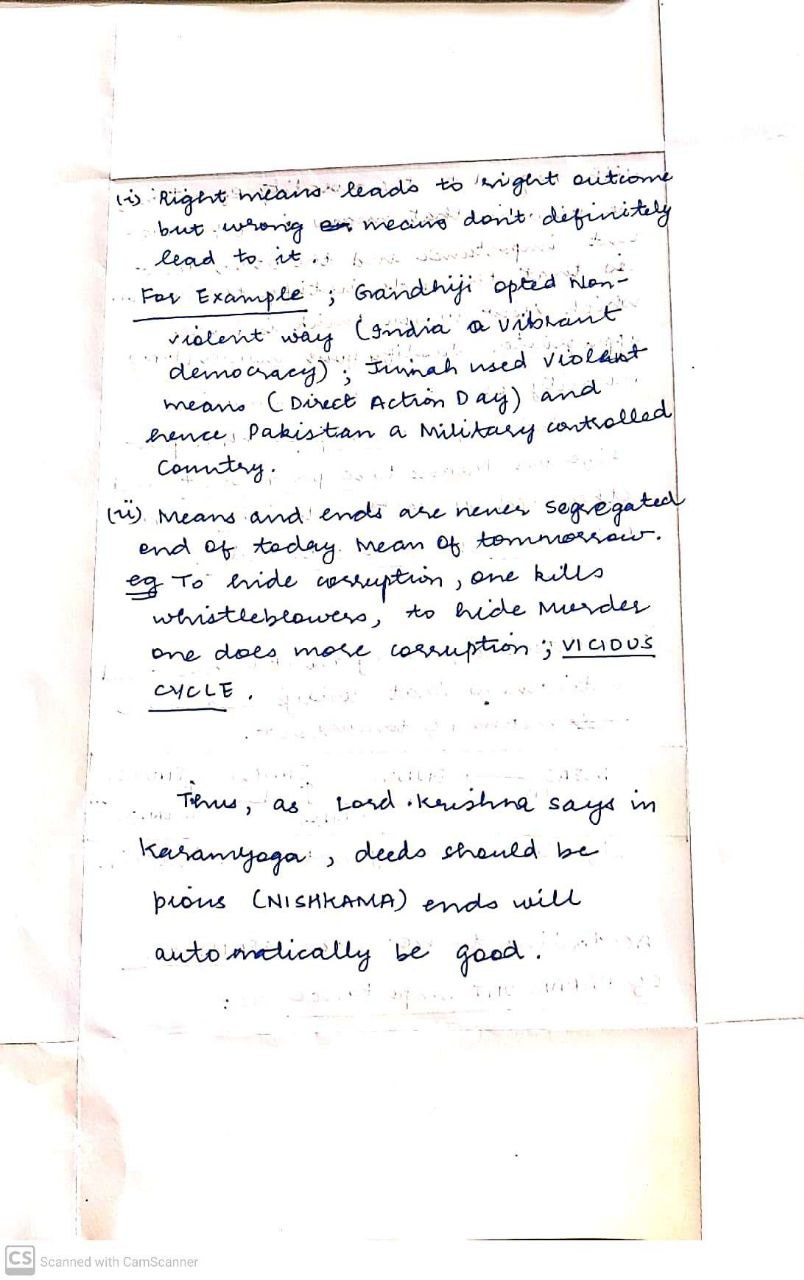 (i) Right means leads to right outcome
but wrong means don't definitely
lead to it.
For Example ; Gandhiji opted Non-
violent way (India a vibrant
democracy) ; Jinnah used violent
means (Direct Action Day) and
hence, Pakistan a Military controlled
Country.
(ii) Means and ends are never segregated
end of today mean of tommorrow.
eg To hide corruption, one kills
whistleblowers, to hide Murder
one does more corruption ; VICIOUS
CYCLE.
Thus, as Lord Krishna says in
Karamyoga, deeds should be
pious (NISHKAMA) ends will
automatically be good.
CS Scanned with CamScanner